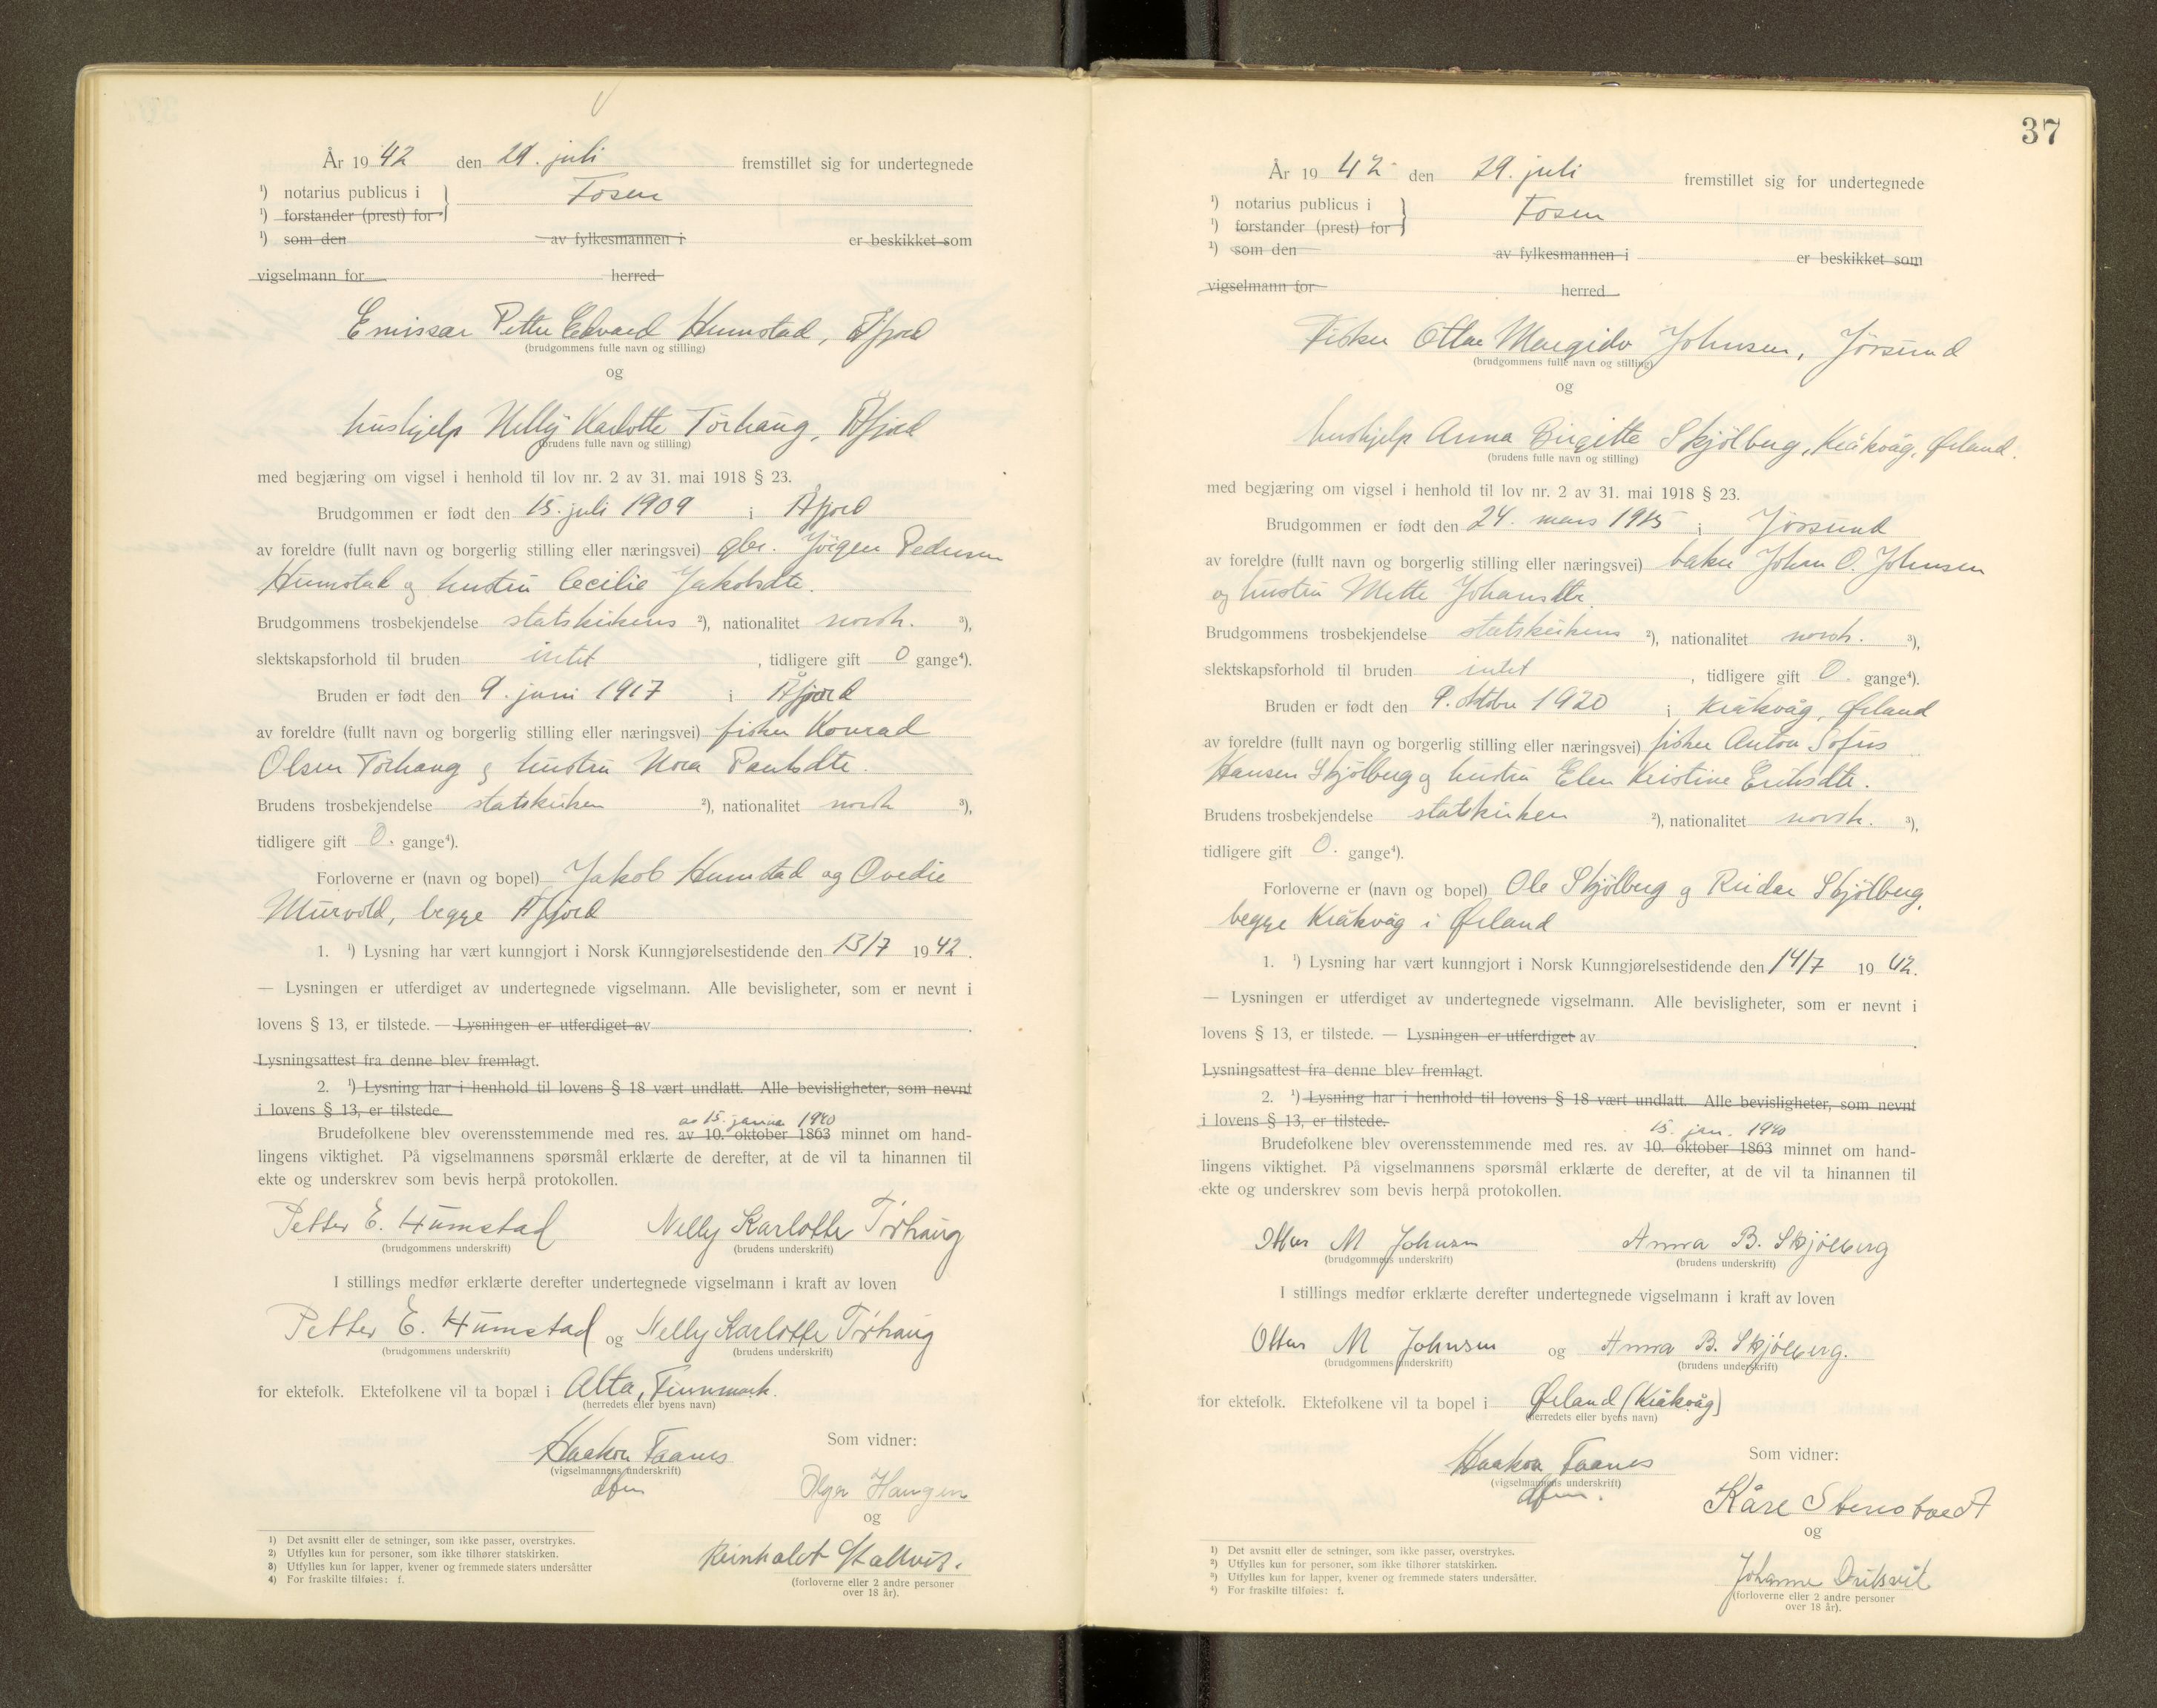 År 19 42 den 29. juli fremstillet sig for undertegnede
¹) notarius publicus i } Fosen
¹) forstander (prest) for
¹) som den av fylkesmannen i er beskikket som
vigselmann for herred
Emissær Petter Edvard Humstad, Åfjord
(brudgommens fulle navn og stilling)
og
hushjelp Nelly Karlotte Tørhaug, Åfjord
(brudens fulle navn og stilling)
med begjæring om vigsel i henhold til lov nr. 2 av 31. mai 1918 § 23.
Brudgommen er født den 15. juli 1909 i Åfjord
av foreldre (fullt navn og borgerlig stilling eller næringsvei) gbr. Jørgen Pedersen
Humstad og hustru Cecilie Jakobsdtr.
Brudgommens trosbekjendelse statskirkens ²), nationalitet norsk. ³),
slektskapsforhold til bruden intet , tidligere gift 0 gange⁴).
Bruden er født den 9. juni 1917 i Åfjord
av foreldre (fullt navn og borgerlig stilling eller næringsvei) fisker Konrad
Olsen Tørhaug og hustru Nora Paulsdtr.
Brudens trosbekjendelse statskirken ²), nationalitet norsk ³),
tidligere gift 0. gange⁴).
Forloverne er (navn og bopel) Jakob Humstad og Ovedie
Murvold, begge Åfjord
1. ¹) Lysning har vært kunngjort i Norsk Kunngjørelsestidende den 13/7 19 42.
— Lysningen er utferdiget av undertegnede vigselmann. Alle bevisligheter, som er nevnt i
lovens § 13, er tilstede. — Lysningen er utferdiget av .
Lysningsattest fra denne blev fremlagt.
2. ¹) Lysning har i henhold til lovens § 18 vært undlatt. Alle bevisligheter, som nevnt
i lovens § 13, er tilstede
av 15. januar 1940
Brudefolkene blev overensstemmende med res. av 10. oktober 1863 minnet om hand-
lingens viktighet. På vigselmannens spørsmål erklærte de derefter, at de vil ta hinannen til
ekte og underskrev som bevis herpå protokollen.
Petter E. Humstad Nelly Karlotte Tørhaug
(brudgommens underskrift) (brudens underskrift)
I stillings medfør erklærte derefter undertegnede vigselmann i kraft av loven
Petter E. Humstad og Nelly Karlotte Tørhaug
(brudgommens underskrift) (brudens underskrift)
for ektefolk. Ektefolkene vil ta bopæl i Alta, Finnmark.
(herredets eller byens navn)
Som vidner:
Haakon Faanes
(vigselmannens underskrift)
dfm
Olga Haugen
og
Reinholdt Stallvik.
(forloverne eller 2 andre personer
over 18 år).
1) Det avsnitt eller de setninger, som ikke passer, overstrykes.
2) Utfylles kun for personer, som ikke tilhører statskirken.
3) Utfylles kun for lapper, kvener og fremmede staters undersåtter
4) For fraskilte tilføies: f.
37
År 19 42 den 29. juli fremstillet sig for undertegnede
¹) notarius publicus i } Fosen
¹) forstander (prest) for
¹) som den av fylkesmannen i er beskikket som
vigselmann for herred
Fisker Ottar Margido Johnsen, Jøssund
(brudgommens fulle navn og stilling)
og
hushjelp Anna Birgitte Skjølberg, Kråkvåg, Ørland.
(brudens fulle navn og stilling)
med begjæring om vigsel i henhold til lov nr. 2 av 31. mai 1918 § 23.
Brudgommen er født den 24. mars 1915 i Jøssund
av foreldre (fullt navn og borgerlig stilling eller næringsvei) baker Johan O. Johnsen
og hustru Mette Johansdtr.
Brudgommens trosbekjendelse statskirkens ²), nationalitet norsk. ³),
slektskapsforhold til bruden intet , tidligere gift 0. gange⁴).
Bruden er født den 9. oktober 1920 i Kråkvåg, Ørland
av foreldre (fullt navn og borgerlig stilling eller næringsvei) fisker Anton Sofus
Hansen Skjølberg og hustru Elen Kristine Eriksdtr.
Brudens trosbekjendelse statskirken ²), nationalitet norsk. ³),
tidligere gift 0. gange⁴).
Forloverne er (navn og bopel) Ole Skjølberg og Reidar Skjølberg,
begge Kråkvåg i Ørland
1. ¹) Lysning har vært kunngjort i Norsk Kunngjørelsestidende den 14/7 19 42.
— Lysningen er utferdiget av undertegnede vigselmann. Alle bevisligheter, som er nevnt i
lovens § 13, er tilstede. — Lysningen er utferdiget av .
Lysningsattest fra denne blev fremlagt.
2. ¹) Lysning har i henhold til lovens § 18 vært undlatt. Alle bevisligheter, som nevnt
i lovens § 13, er tilstede.
15. jan. 1940
Brudefolkene blev overensstemmende med res. av 10. oktober 1863 minnet om hand-
lingens viktighet. På vigselmannens spørsmål erklærte de derefter, at de vil ta hinannen til
ekte og underskrev som bevis herpå protokollen.
Ottar M Johnsen Anna B. Skjølberg
(brudgommens underskrift) (brudens underskrift)
I stillings medfør erklærte derefter undertegnede vigselmann i kraft av loven
Ottar M Johnsen og Anna B. Skjølberg.
(brudgommens underskrift) (brudens underskrift)
for ektefolk. Ektefolkene vil ta bopel i Ørland (Kråkvåg)
(herredets eller byens navn)
Som vidner:
Haakon Faanes
(vigselmannens underskrift)
dfm.
Kåre Stensvedt
og
Johanne
(forloverne eller 2 andre personer
over 18 år).
1) Det avsnitt eller de setninger, som ikke passer, overstrykes.
2) Utfylles kun for personer, som ikke tilhører statskirken.
3) Utfylles kun for lapper, kvener og fremmede staters undersåtter.
4) For fraskilte tilføies: f.